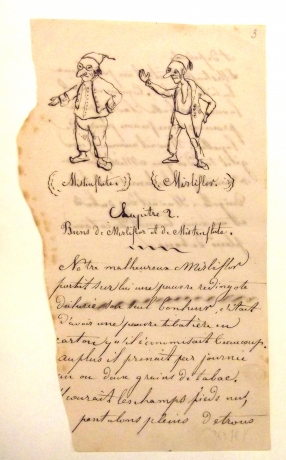 3
(Mistenflûte.) (Misliflor.)
Chapitre 2.
de Misliflor et de Mistenflûte.
Notre malheureux Misliflor
portait sur lui une pauvre redingote
bonheur était
d'avoir une pauvre tabatière en
carton, qu'il économisait beaucoup.
au plus il prenait par journée
un ou deux grains de tabac.
courait les champs pieds nus,
pantalons pleins de trous